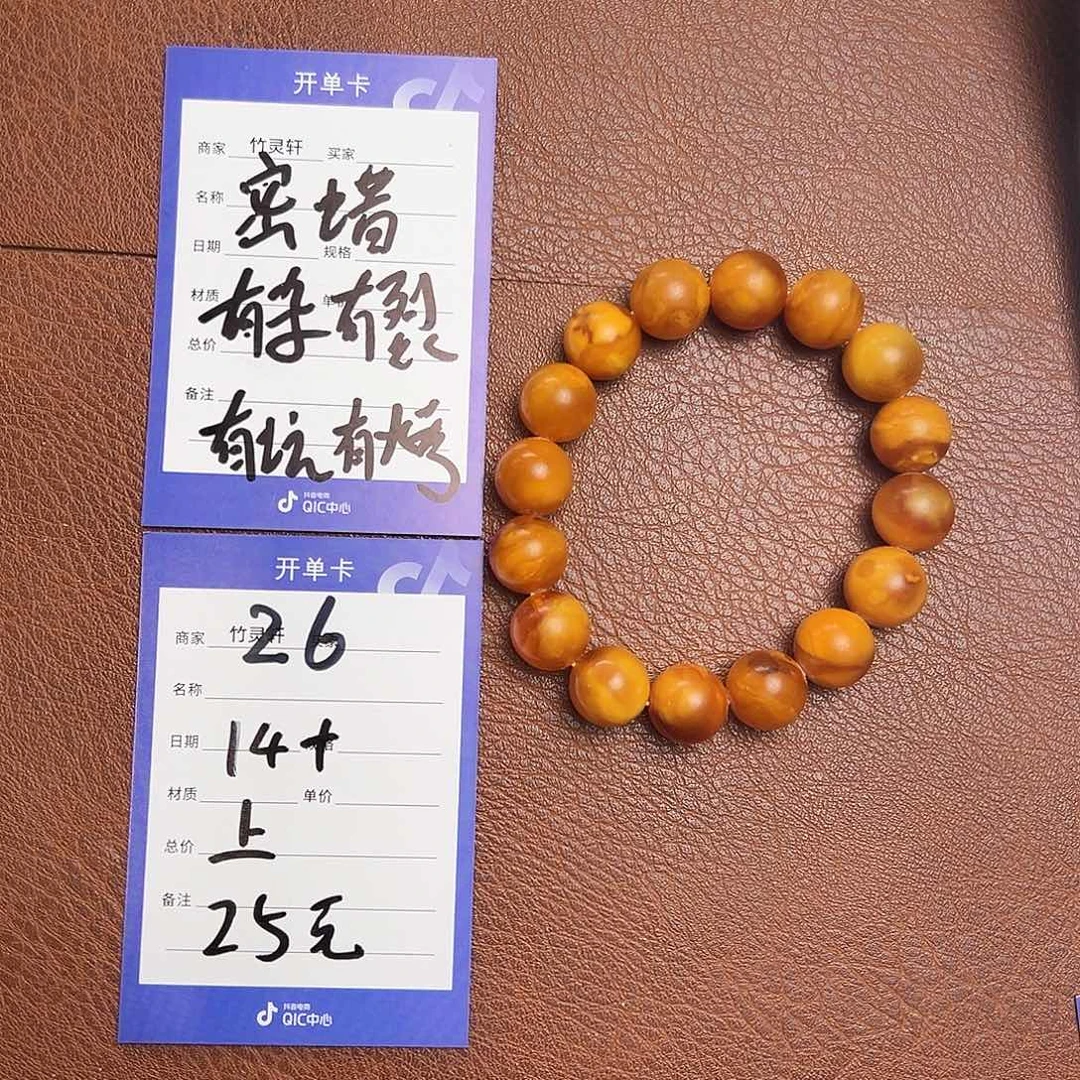 开单卡
商家 竹灵轩 买家
名称 密蜡
日期 规格
材质 有杂有裂
总价
备注 有坑有烤
抖音电商
QIC中心
开单卡
商家 竹灵轩 26
名称
日期 14+
材质 单价
总价 上
备注 25元
抖音电商
QIC中心